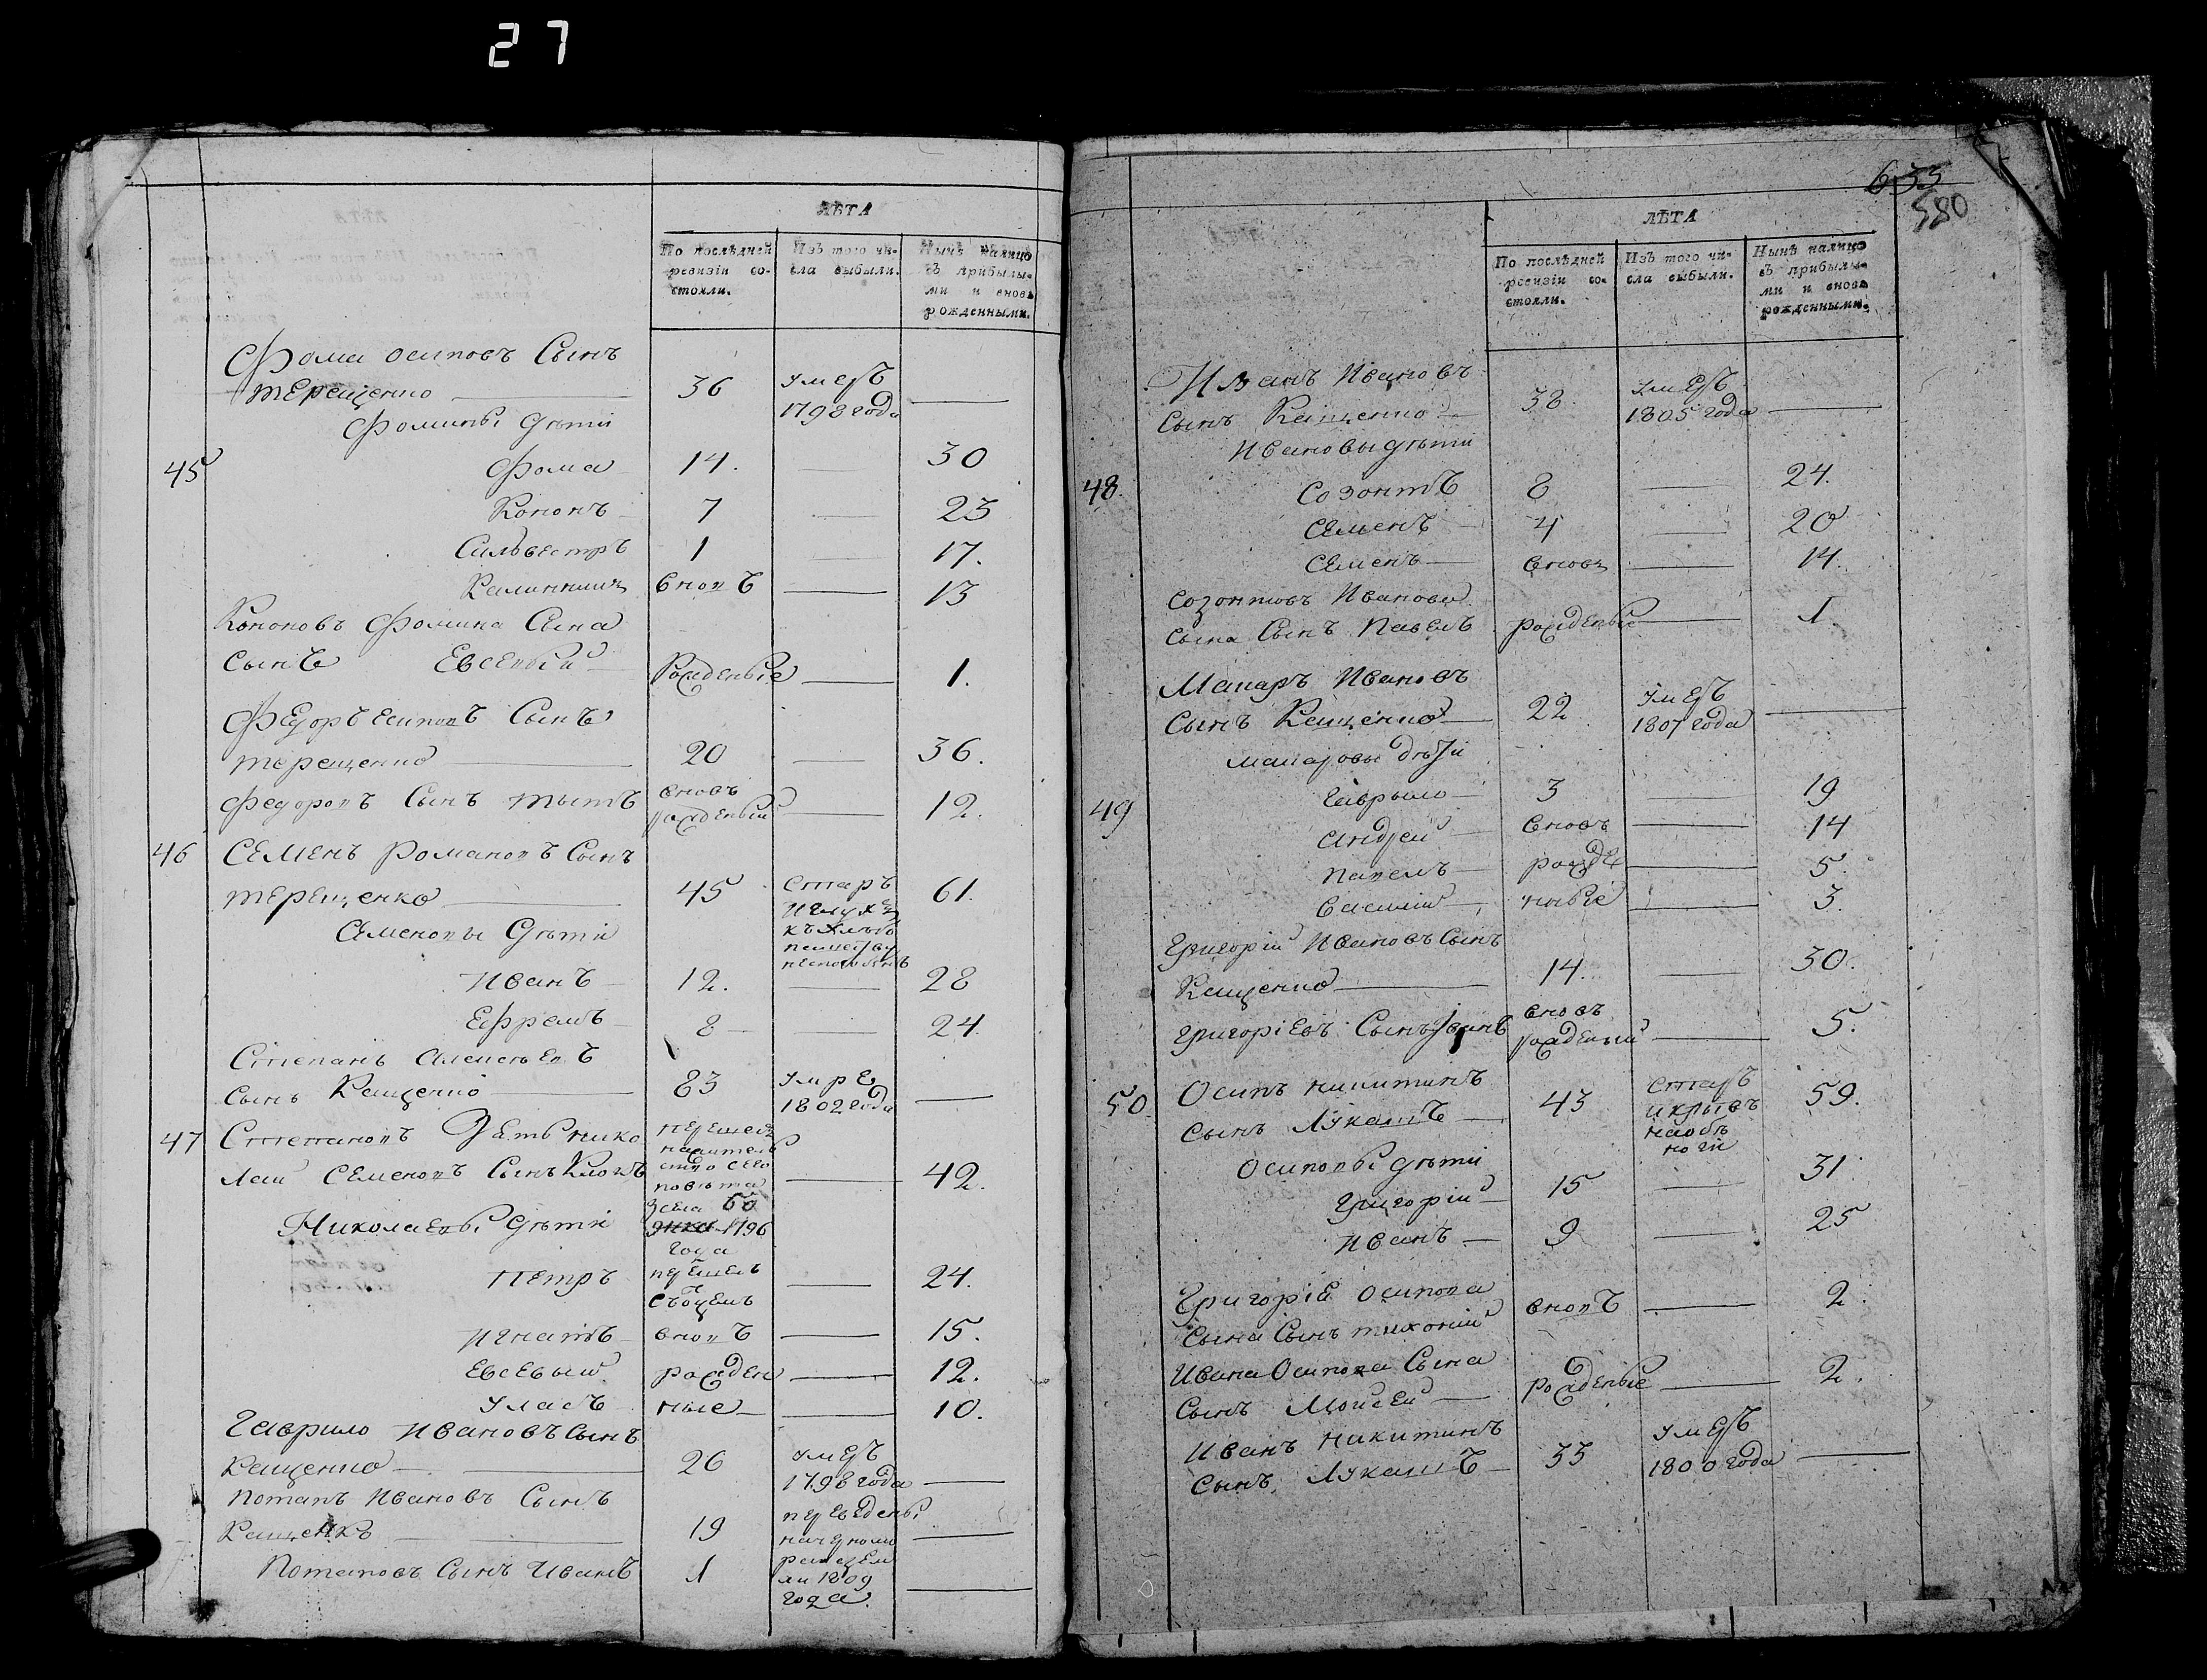 27
ЛѢТА
По послѣдней ревизіи состояли.
Изъ того числа выбыли.
Нынѣ налицо съ прибылыми и вновь рожденными.
Фома осиповъ Сынъ
терещенко 36 умеръ 1798 года
Фомины дѣти
45 Фома 14. 30
Кононъ 7 23
Сильвестръ 1 17.
вновъ 13
Кононовъ Фомина Сына
Сынъ Евсевъй рожденые 1.
Федоръ есиповъ Сынъ
терещенко 20 36.
Федоровъ Сынъ титъ вновъ рожденый 12.
46 Семенъ Романовъ Сынъ
терещенко 45 старъ 61.
Семеновы дѣти
Иванъ 12. 28
Ефремъ 8 24.
Степанъ
Сынъ Кащенко 83 умре 1802 года
47 Степановъ Зеть нико
лай Семеновъ Сынъ 42.
1796 года
Николаевы дѣти
Петръ перешелъ съ оцемъ 24.
Игнатъ вновъ 15.
Евсевый рожден 12.
Уласъ ные 10.
Гаврило Ивановъ Сынъ
Кащенко 26 умеръ 1798 года
Потапъ Ивановъ Сынъ
Кащенкъ 19 переведены
Потаповъ Сынъ Иванъ 1 1809 года
633
580
ЛѢТА
По послѣдней ревизіи состояли.
Изъ того числа выбыли.
Нынѣ налицо съ прибылыми и вновь рожденными.
Иванъ Ивановъ
Сынъ Кащенко 38. умеръ 1805 года
Ивановы дѣти
48. Созонтъ 8 24.
Семенъ 4 20
Семенъ вновъ 14.
Созонтовъ Иванова
Сына Сынъ Павелъ рожденые 1
Макаръ Ивановъ
Сынъ Кащенко 22 умеръ 1807 года
Макаровы дѣти
49 Гаврыло 3 19
Андрей вновъ 14
Павелъ рожде 5.
Василій ныѣ 3.
Григорій Ивановъ Сынъ
Кащенко 14. 30.
Григоріевъ Сынъ Иванъ вновъ рожденый 5.
50. Осипъ никитинъ
Сынъ Лукашъ 43 старъ 59.
Осиповы дѣти
Григорій 15 31
Иванъ 9 25
Григорія Осипова
Сына Сынъ тихоній вновъ 2
Ивана Осипова Сына
Сынъ Мойсей рожденые 2.
Иванъ никитинъ
Сынъ Лукашъ 33 умеръ 1800 года